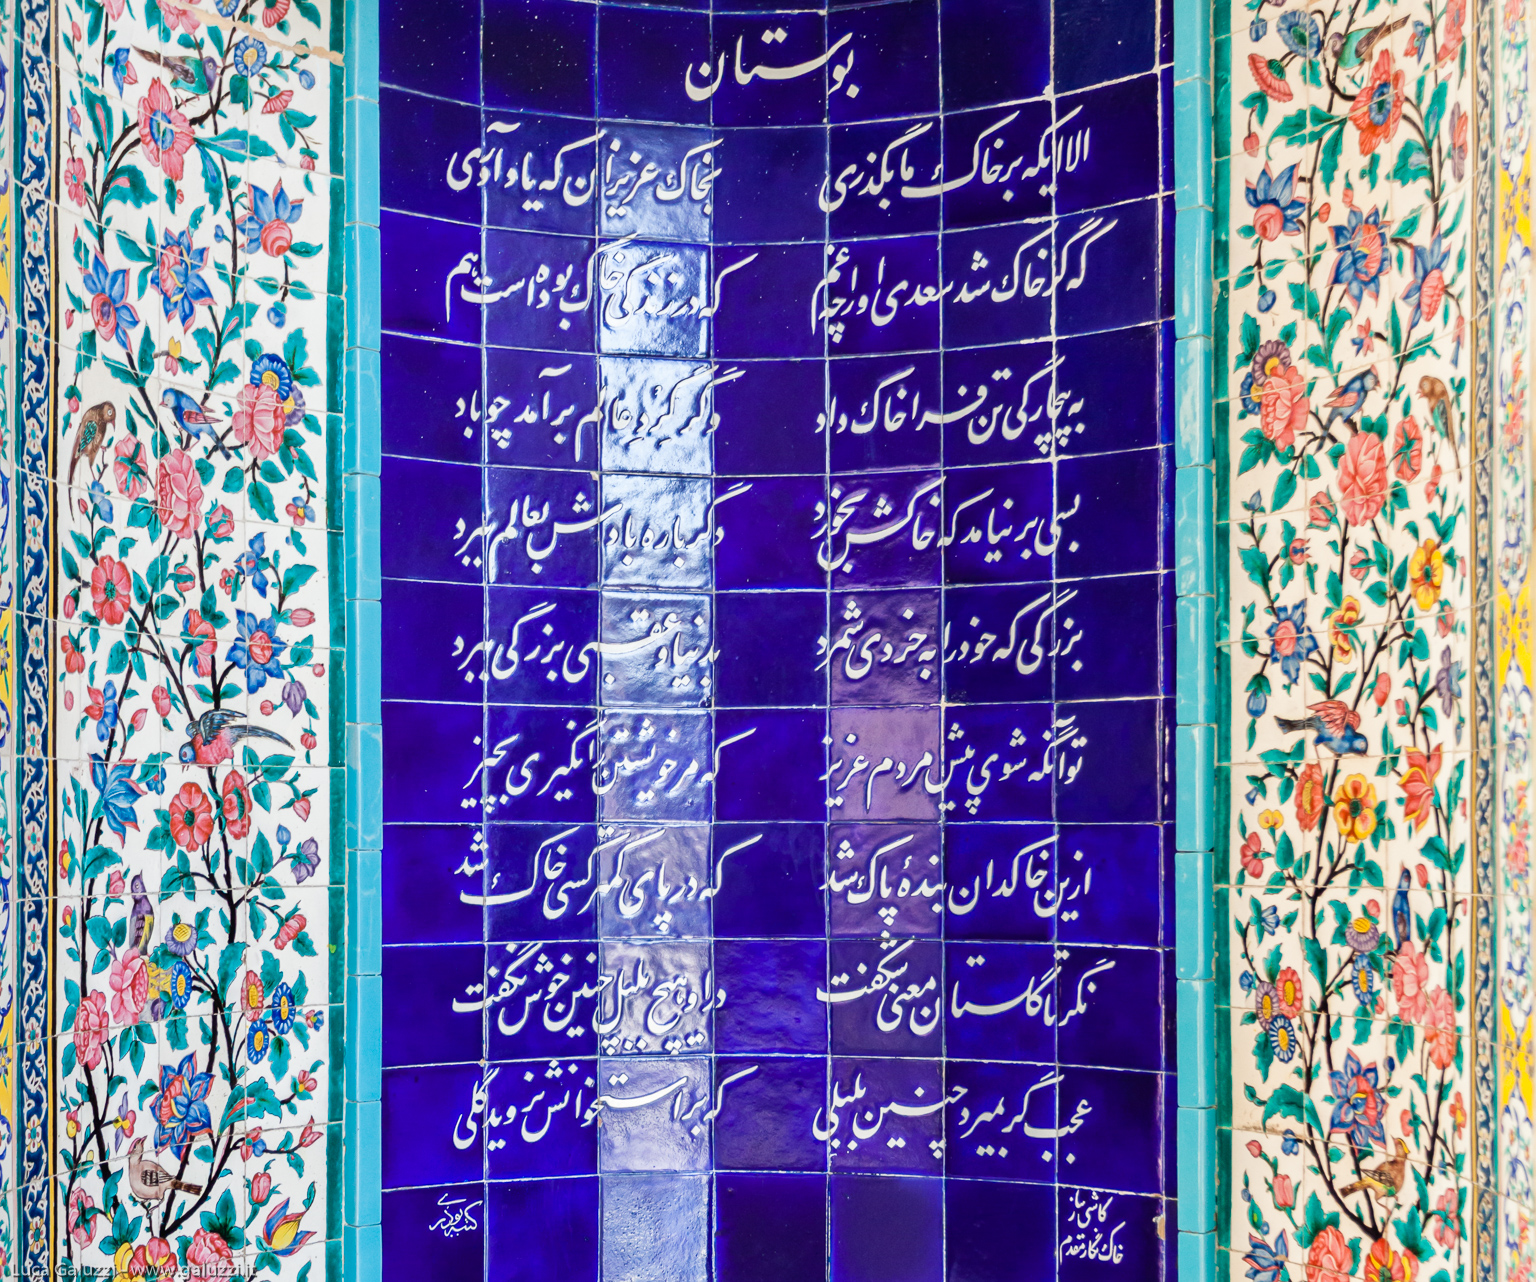 بوستان
الا ایکه بر خاک ما بگذری بخاک عزیزان که یاد آوری
که گر خاک شد سعدی او را چه غم که در زندگی خاک بوده است هم
به بیچارگی تن فرا خاک داد دگر گرد عالم بر آمد چو باد
بسی بر نیامد که خاکش بخورد دگر باره بادش بعالم ببرد
بزرگی که خود را به خردی شمرد بدنیا و عقبی بزرگی ببرد
تو آنگه شوی پیش مردم عزیز که مر خویشتن را نگیری بچیز
ازین خاکدان بنده پاک شد که در پای کمتر کسی خاک شد
نگر تا گلستان معنی شکفت در او هیچ بلبل چنین خوش نگفت
عجب گر بمیرد چنین بلبلی که بر استخوانش نروید گلی
کاشی ساز
خاک نگار مقدم
کتبه بوذری
Luca Galuzzi - www.galuzzi.it